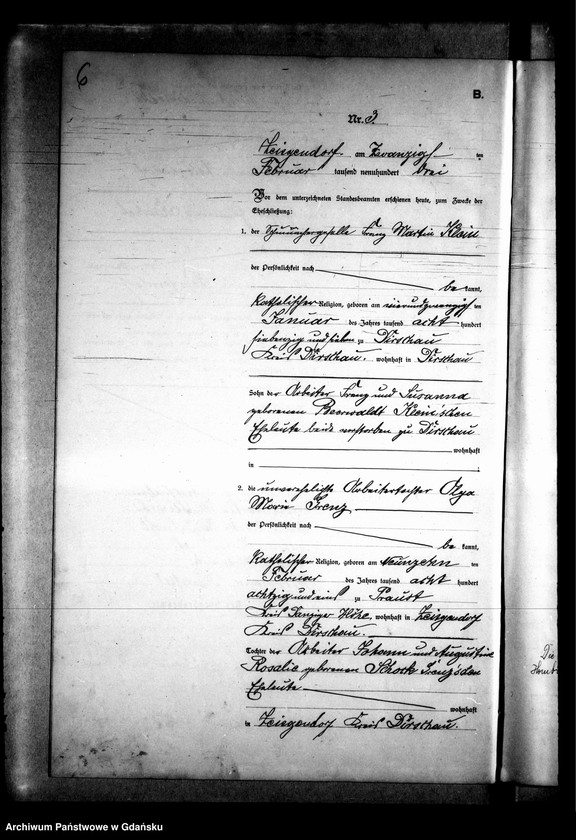 6
B.
Nr. 3.
Zeisgendorf am Zwanzigsten
Februar tausend neunhundert drei
Vor dem unterzeichneten Standesbeamten erschienen heute, zum Zwecke der
Eheschließung:
1. der Franz Martin Klein
der Persönlichkeit nach
be kannt,
katholischer Religion, geboren am vierundzwanzigsten
Januar des Jahres tausend acht hundert
siebenzig und sieben zu Dirschau
Kreis Dirschau. wohnhaft in Dirschau
Sohn der Arbeiter Franz und Susanna
geborenen Beerwaldt Klein'schen
Eheleute beide verstorben zu Dirschau
wohnhaft
in
2. die unverehelichte Arbeitertochter Olga
Marie Frenz
der Persönlichkeit nach
be kannt,
katholischer Religion, geboren am Neunzehn ten
Februar des Jahres tausend acht hundert
achtzig und eins zu Praust
Kreis Danziger Höhe, wohnhaft in Zeisgendorf
Kreis Dirschau.
Tochter der Arbeiter Johann und Augustine
Rosalie geborenen Schock Frenz'schen
Eheleute
wohnhaft
in Zeisgendorf Kreis Dirschau.
Die
Archiwum Państwowe w Gdańsku